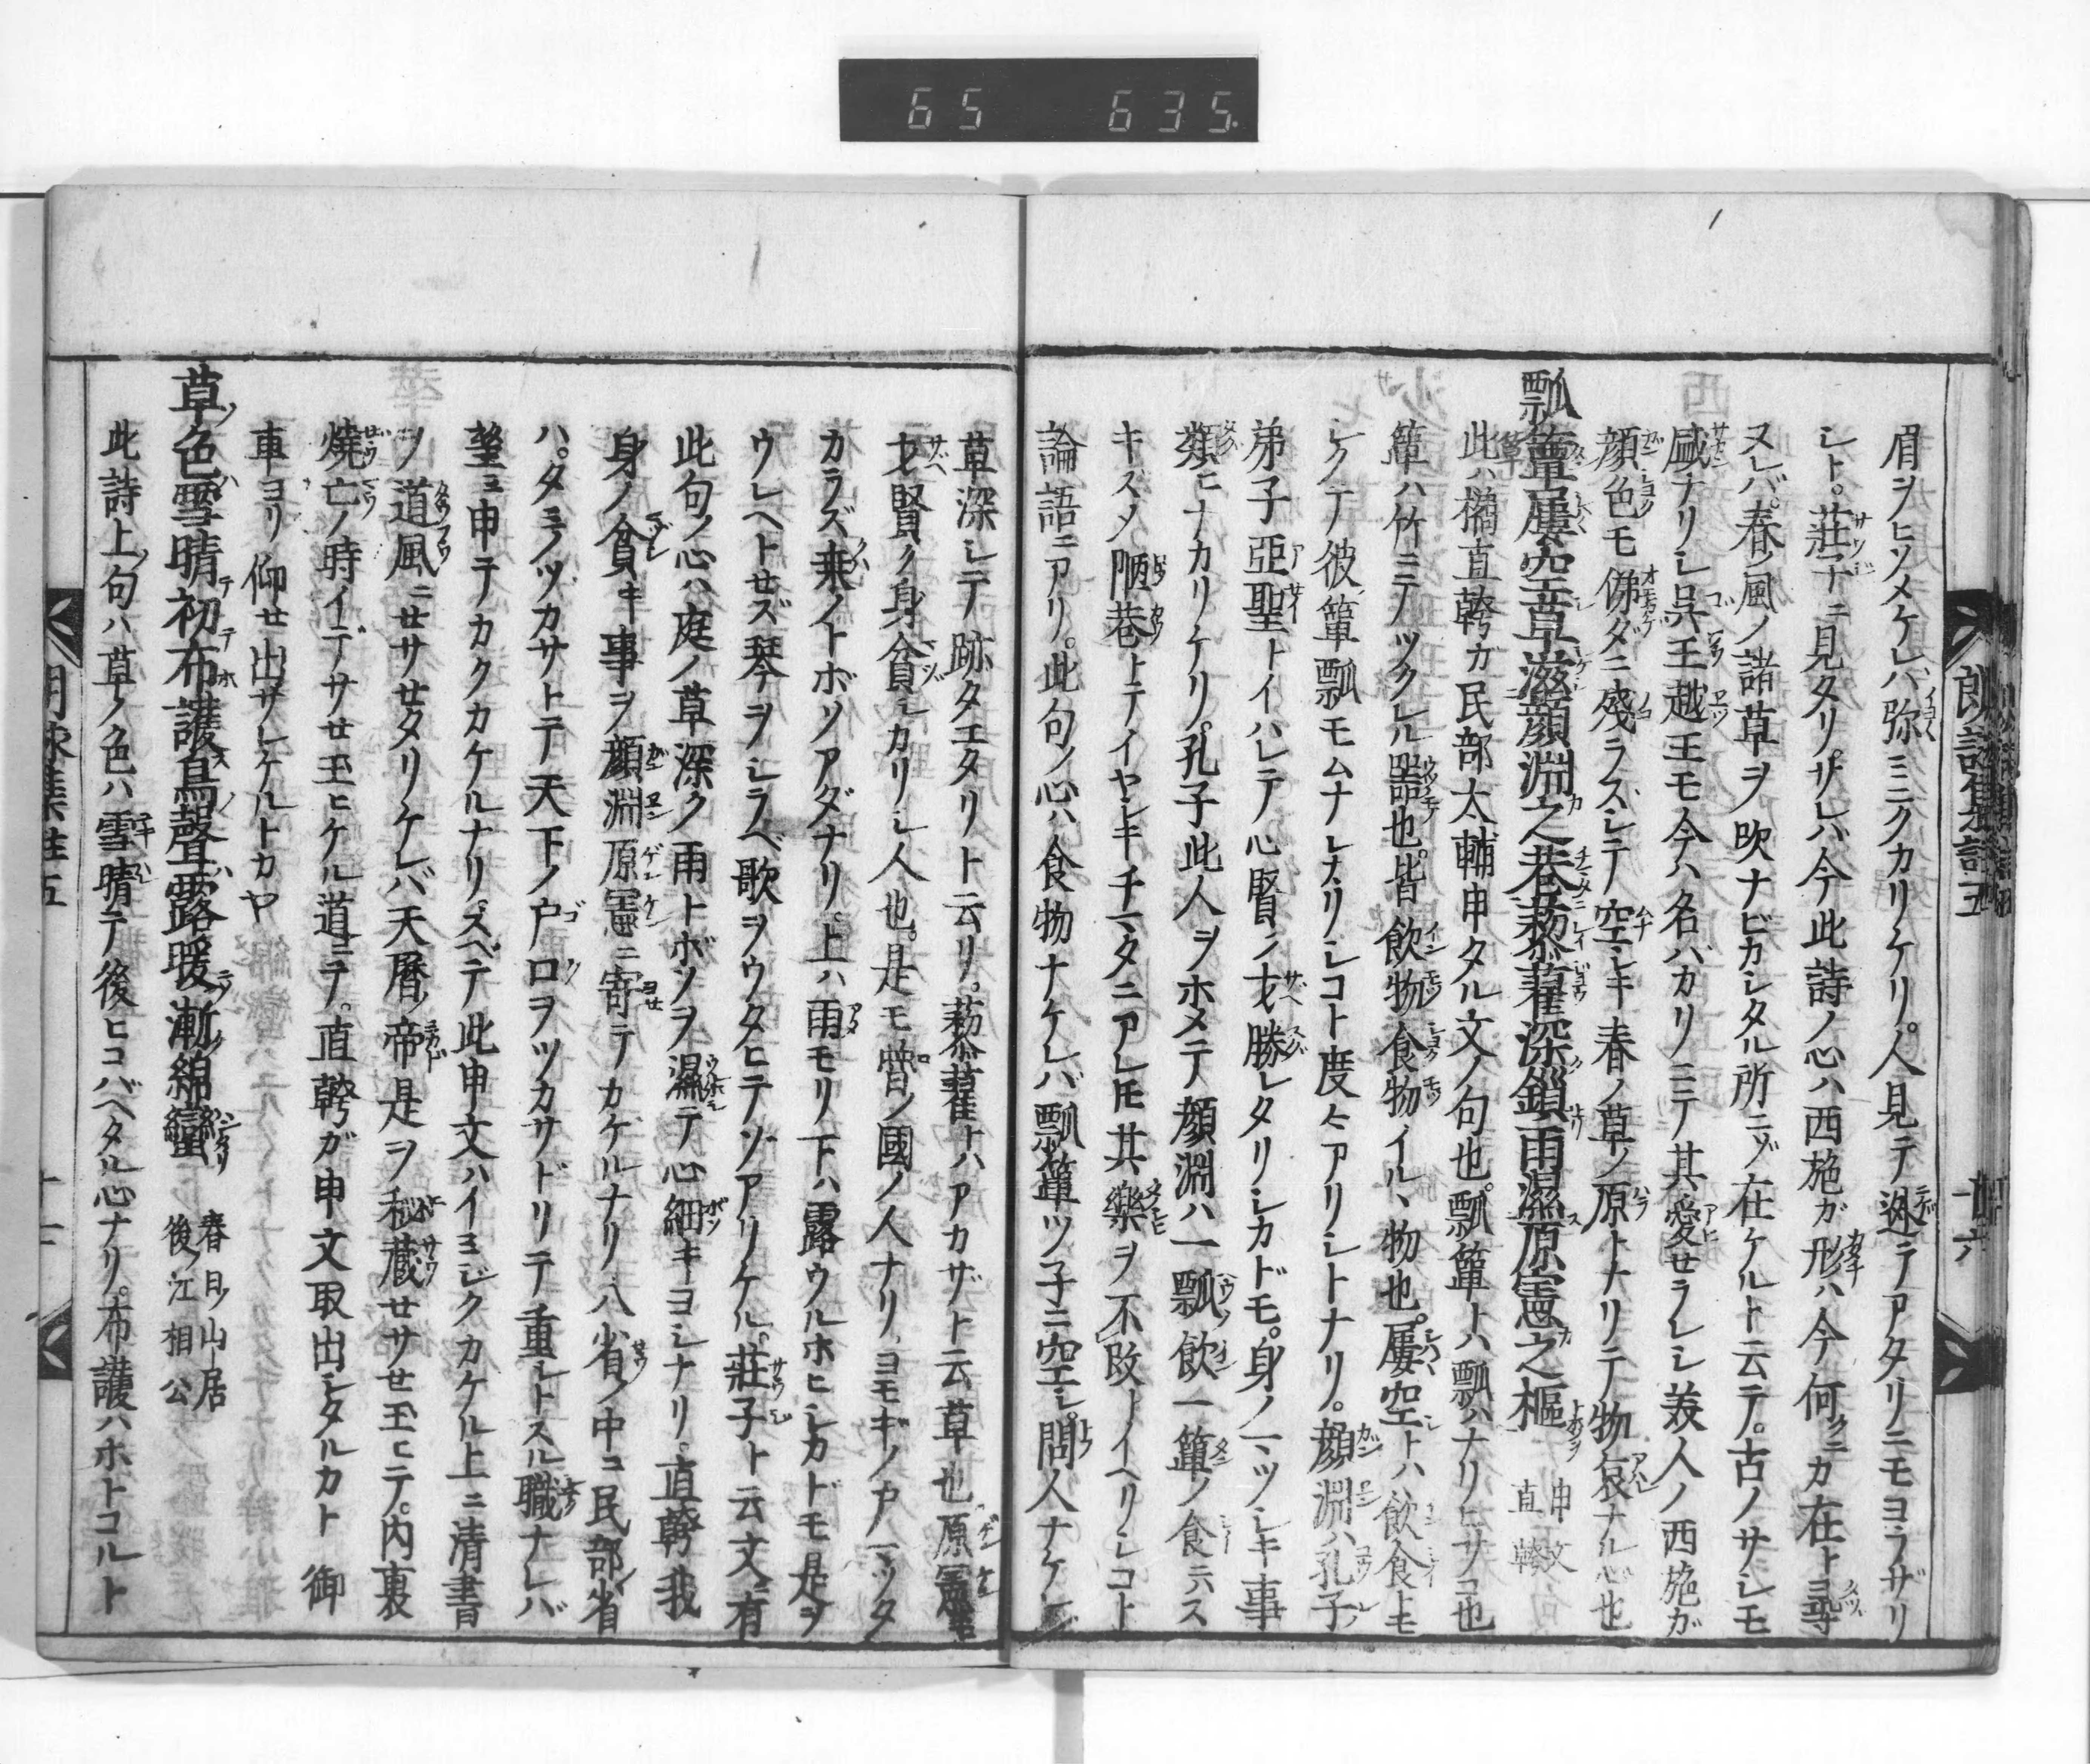 65 635.
眉ヲヒソメケレバ弥ミニクカリケリ。人見テ迯テアタリニモヨラザリ
シト。荘子ニ見タリ。サレバ今此詩ノ心ハ西施ガ形ハ今何クニカ在ト尋
ヌレバ。春ノ風ノ諸草ヲ吹ナビカシタル所ニゾ在ケルト云テ。古ノサシモ
盛ナリシ呉王越王モ今ハ名バカリニテ其愛セラレシ美人ノ西施ガ
顔色モ俤ダニ残ラスシテ空シキ春ノ草ノ原トナリテ物哀ナル心也
瓢簞屢空草滋顔淵之巷藜藋深鎖雨濕原憲之樞 申文 直幹
此ハ橘直幹ガ民部太輔申タル文ノ句也。瓢簞トハ瓢ハナリヒサコ也
簞ハ竹ニテツクレル器也。皆飲物食物イルヽ物也。屢空トハ飲食トモ
シクテ彼簞瓢モムナシナリシコト度々アリシトナリ。顔淵ハ孔子ノ
弟子亞聖トイハレテ心賢ク才勝レタリシカドモ。身ノマツシキ事
類ヒナカリケリ。孔子此人ヲホメテ顔淵ハ一瓢飲一簞ノ食ニス
キズメ陋巷トテイヤシキチマタニアレ𪜈其樂ヲ不改トイヘリシコト
論語ニアリ。此句ノ心ハ食物ナケレバ瓢簞ツ子ニ空シ。問人ナケレバ
草深シテ跡タエタリト云リ。藜藋トハアカザト云草也原憲ハ
才賢ク身貧シカリシ人也。是モ曾ノ國ノ人ナリ。ヨモギノ戸マツタ
カラズ乗ノトボソアダナリ。上ハ雨モリ下ハ露ウルホヒシカドモ是ヲ
ウレヘトセズ琴ヲシラベ歌ヲウタヒテソアリケル。荘子ト云文ニ有
此句ノ心ハ庭ノ草深ク雨トボソヲ濕テ心細キヨシナリ。直幹我
身ノ貧キ事ヲ顔淵原憲ニ寄テカケルナリ八省ノ中ニ民部省
ハ。タミノツカサトテ天下ノ戸口ヲツカサドリテ重シトスル職ナレバ
望ミ申テカクカケルナリ。スベテ此申文ハイミジクカケル上ニ清書
ヲ道風ニセサセタリケレバ天暦ノ帝是ヲ秘蔵セサセ玉ヒテ。内裏
焼亡ノ時イデサセ玉ヒケル道ニテ。直幹ガ申文取出シタルカト御
車ヨリ仰セ出サレケルトカヤ
草色雪晴初布護鳥聲露暖漸綿蠻 春日山居 後ノ江相公
此詩上句ハ草ノ色ハ雪晴テ後ヒコバヘタル心ナリ。布護ハホトコルト